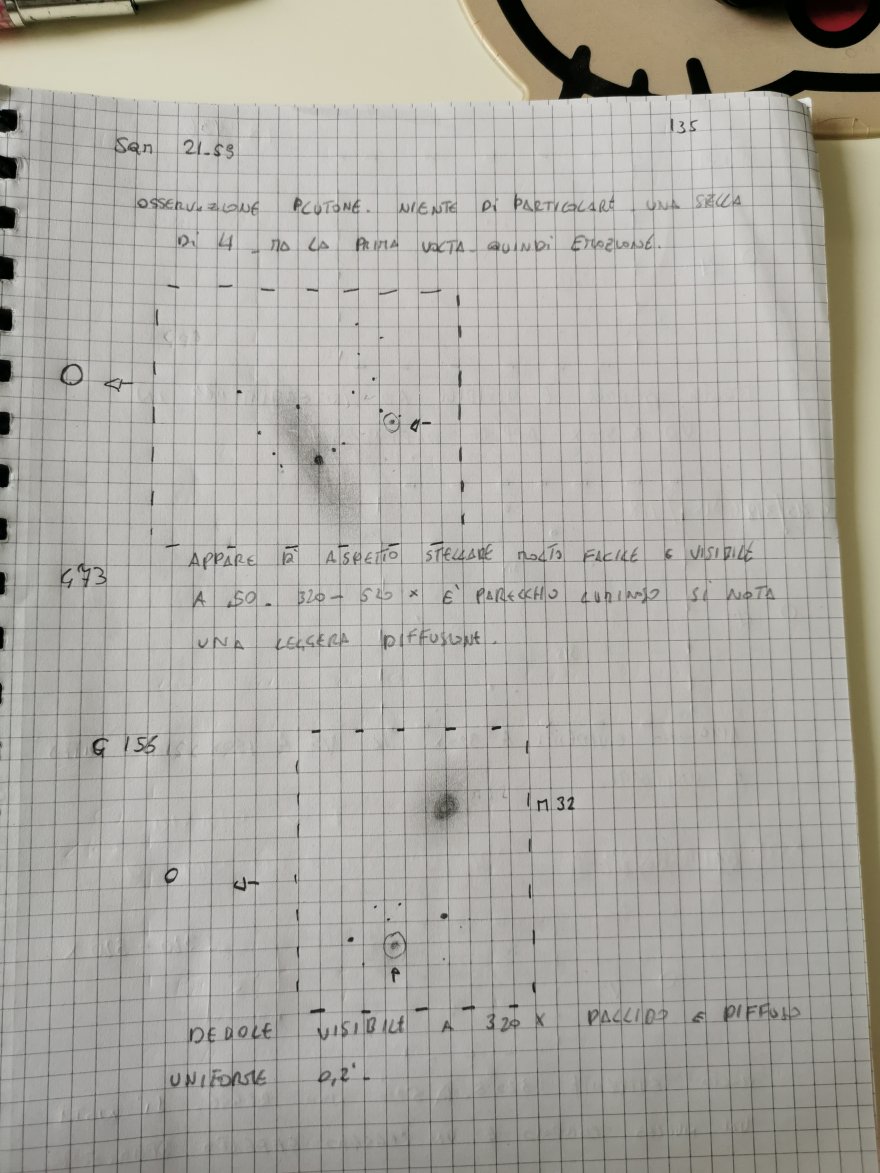 135
SQM 21.59
OSSERVAZIONE PLUTONE. NIENTE Di PARTICOLARE UNA STELLA
Di 14 MA LA PRIMA VOLTA QUINDI EMOZIONE.
O
G73
APPARE DI ASPETTO STELLARE MOLTO FACILE E VISIBILE
A 50. 320 - 520 x E' PARECCHIO LUMINOSO SI NOTA
UNA LEGGERA DIFFUSIONE.
G 156
M 32
O
DEBOLE VISIBILE A 320 X PALLIDO E DIFFUSO
UNIFORME 0,2'.